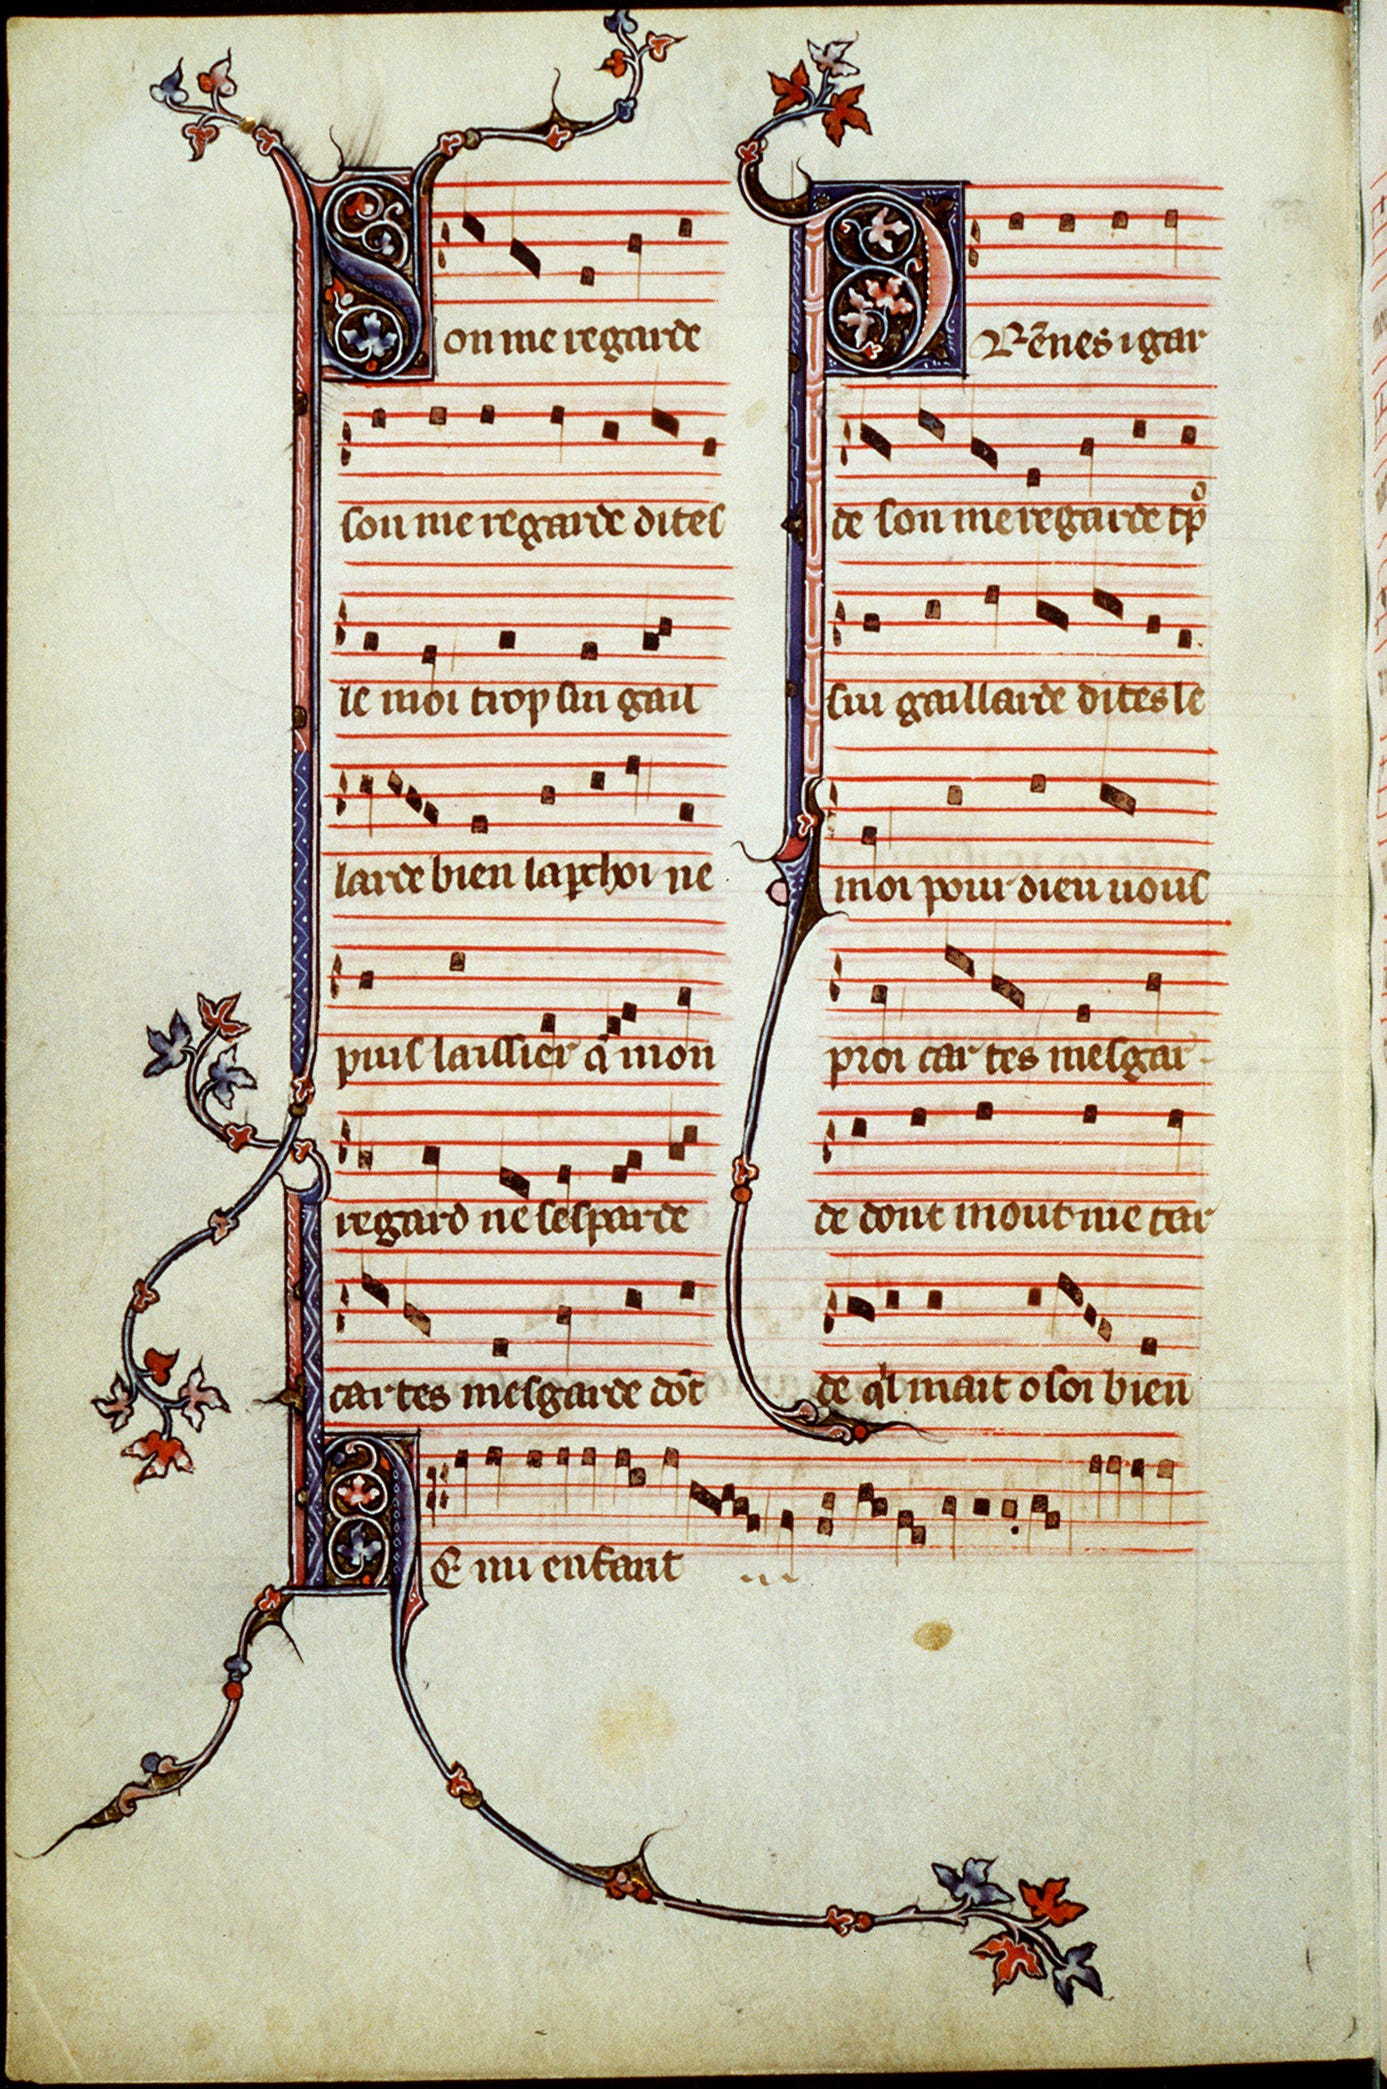 Son me regarde
son me regarde dites
le moi trop sui gail
larde bien lapchoi ne
puis laissier q̃ mon
regard ne sesparde
car tes mesgarde dōt
Prēnes i gar
de son me regarde tͦp
sui gaillarde dites le
moi pour dieu uous
proi car tes mesgar
de dont mout me tar
de ql mait o soi bien
He mi enfant